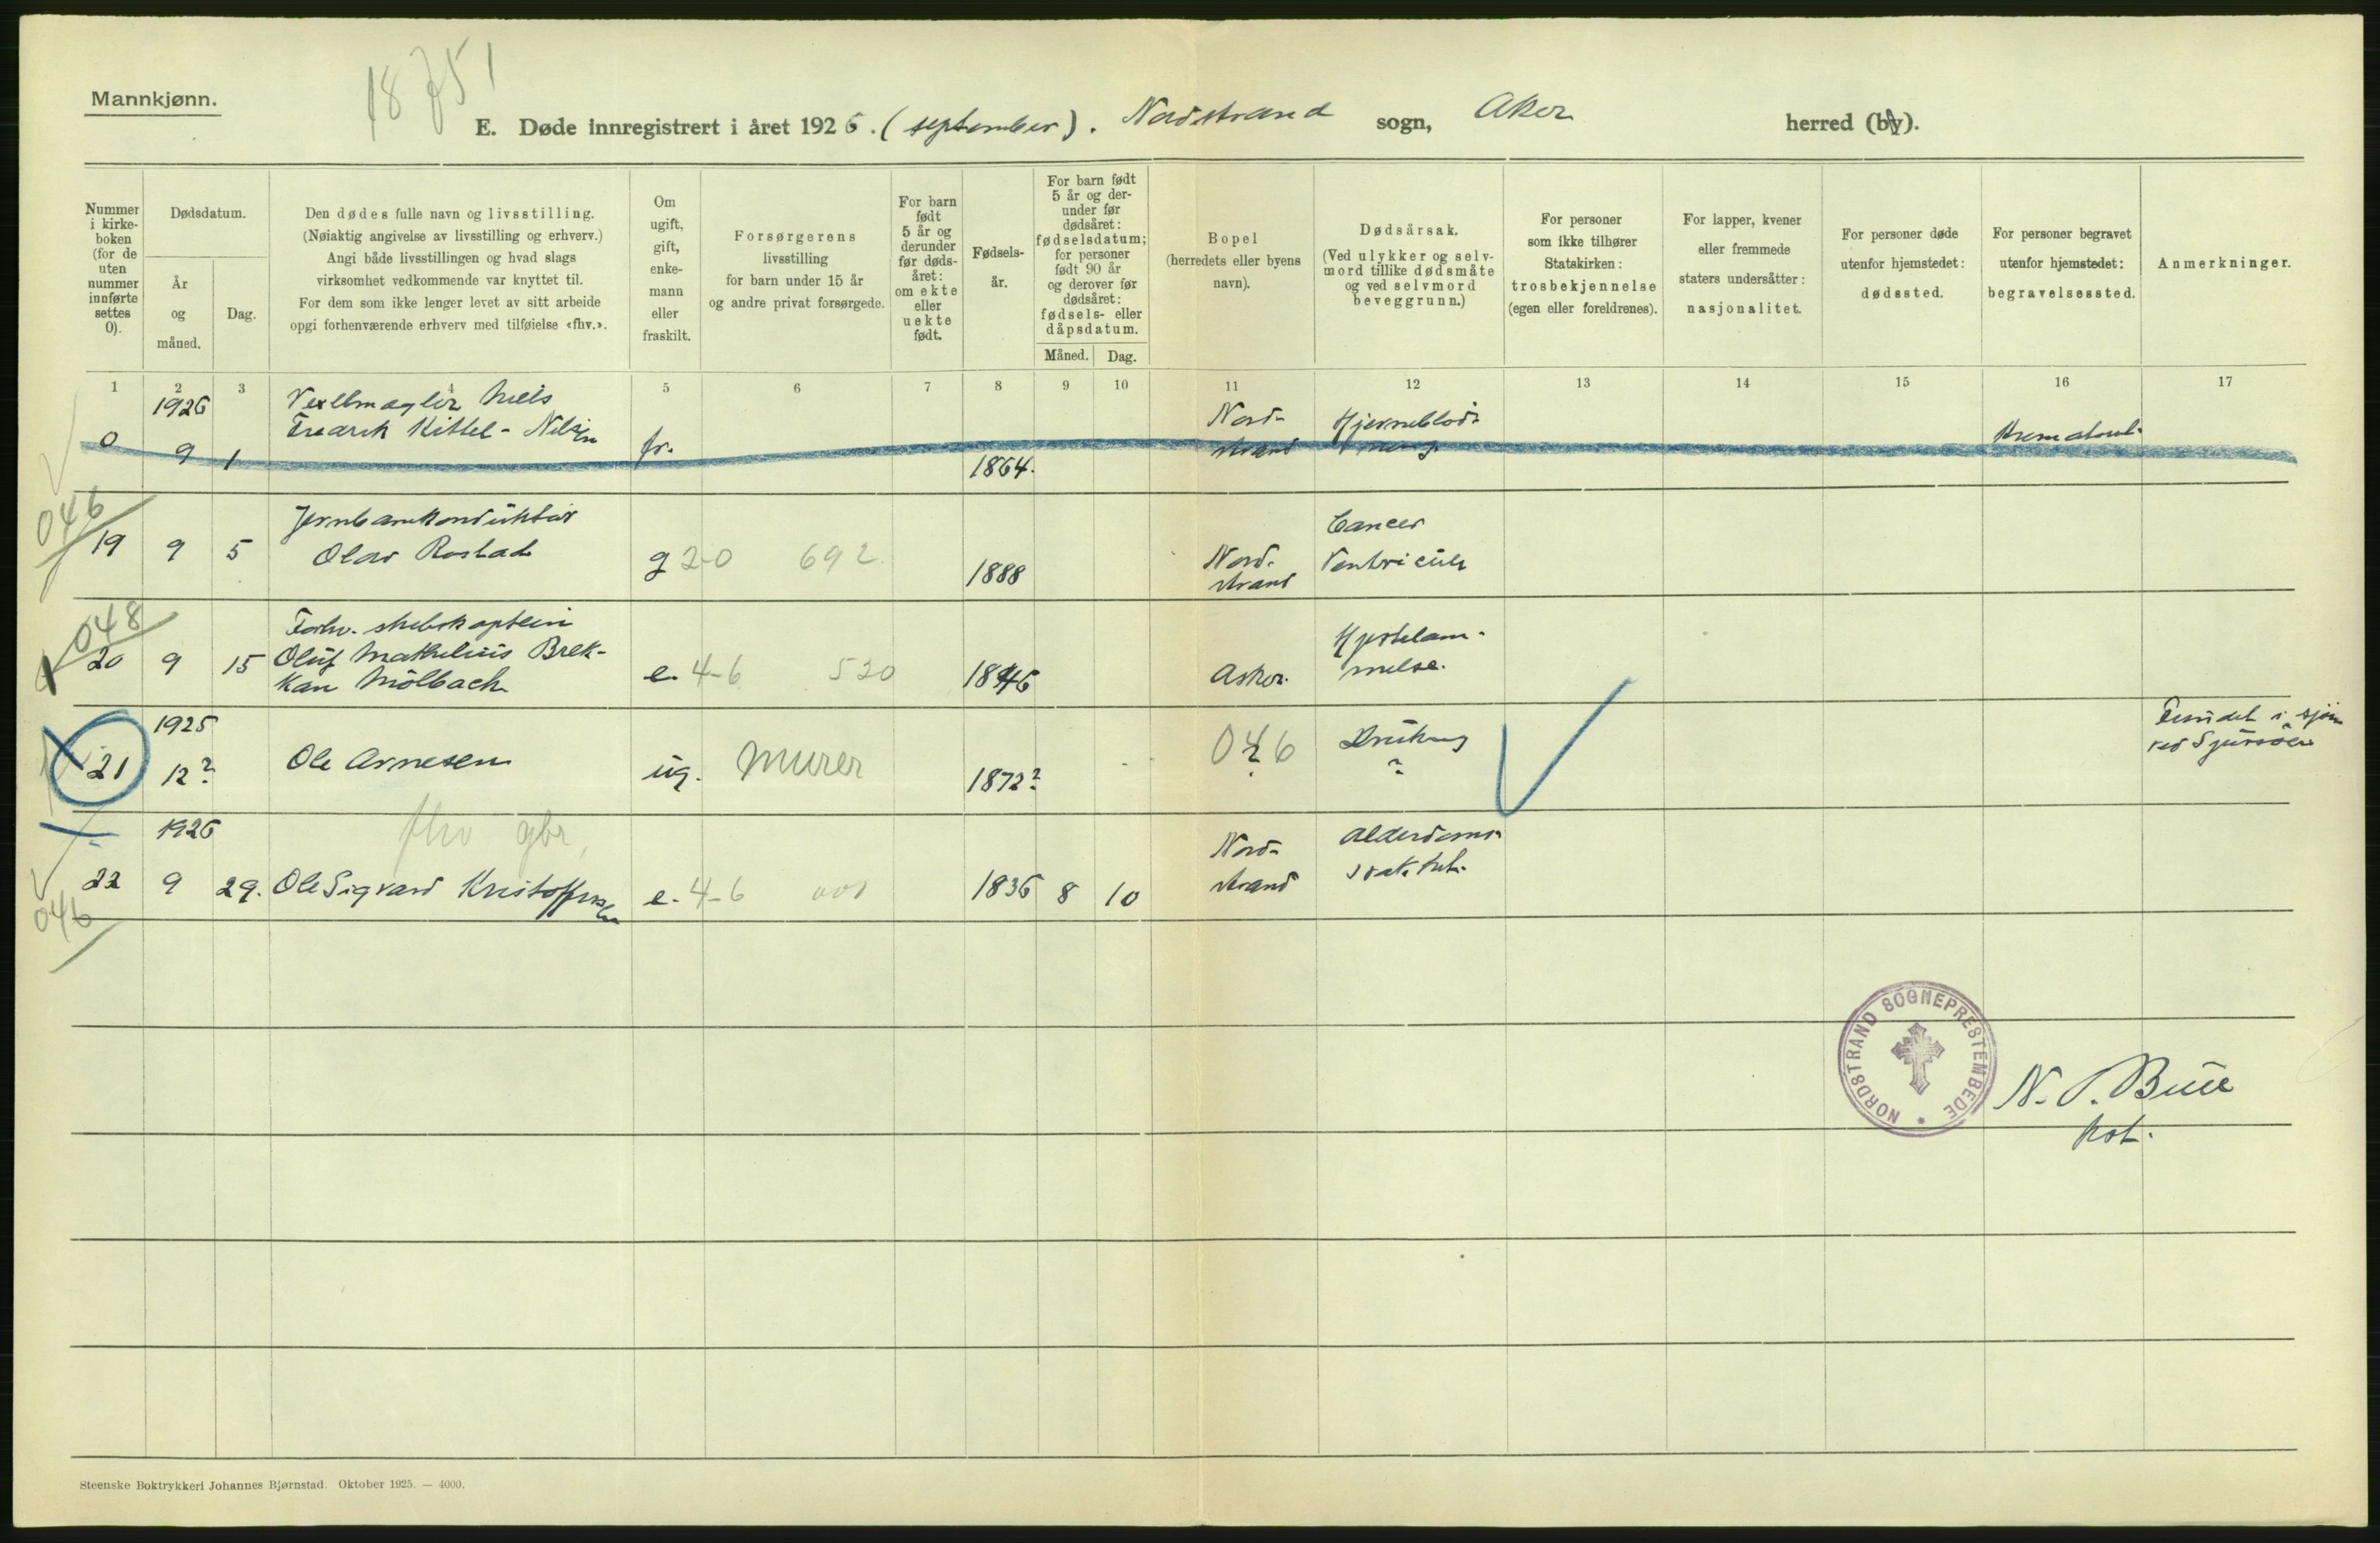 18751
Mannkjønn.
E. Døde innregistrert i året 1926. (september). Nordstrand sogn, Aker herred (by).
Nummer i kirke- boken (for de uten nummer innførte settes 0).
Dødsdatum.
År og måned.
Dag.
Den dødes fulle navn og livsstilling.
(Nøiaktig angivelse av livsstilling og erhverv.)
Angi både livsstillingen og hvad slags
virksomhet vedkommende var knyttet til.
For dem som ikke lenger levet av sitt arbeide
opgi forhenværende erhverv med tilføielse «fhv.».
Om ugift, gift, enke- mann eller fraskilt.
Forsørgerens
livsstilling
for barn under 15 år
og andre privat forsørgede.
For barn født 5 år og derunder før døds- året: om ekte eller uekte født.
Fødsels- år.
For barn født 5 år og der- under før dødsåret: fødselsdatum; for personer født 90 år og derover før dødsåret: fødsels- eller dåpsdatum.
Måned. Dag.
Bopel
(herredets eller byens
navn).
Dødsårsak.
(Ved ulykker og selv-
mord tillike dødsmåte
og ved selvmord
beveggrunn.)
For personer
som ikke tilhører
Statskirken:
trosbekjennelse
(egen eller foreldrenes).
For lapper, kvener
eller fremmede
staters undersåtter:
nasjonalitet.
For personer døde
utenfor hjemstedet:
dødssted.
For personer begravet
utenfor hjemstedet:
begravelsessted.
Anmerkninger.
1 2 3 4 5 6 7 8 9 10 11 12 13 14 15 16 17
1926 Niels Nord- Hjerneblød-
0 9 1 Fredrik Kittel-Nilsen fr. 1864. strand ning
046
Jernbanekonduktør Cancer
19 9 5 Olav Rostad g 2-0 692 1888 Nord- Ventriculi
strand
048
Forhv. skibskaptein
20 9 15 Oluf Brek- e. 4-6 520 1846 Asker. Hjertelam-
kan Mölbach melse.
1925
21 12? Ole Arnesen ug. Murer 1872? 046 ? Drukning ? Fundet i sjøen
ved Sjursøen
1926 fhv gbr. Nord- Alderdoms-
22 9 29. Ole Sigvard Kristoffersen e. 4-6 001 1836 8 10 strand
046
NORDSTRAND SOGNEPRESTEMBEDE
N. P. Bull
kst.
Steenske Boktrykkeri Johannes Bjørnstad. Oktober 1925. — 4000.